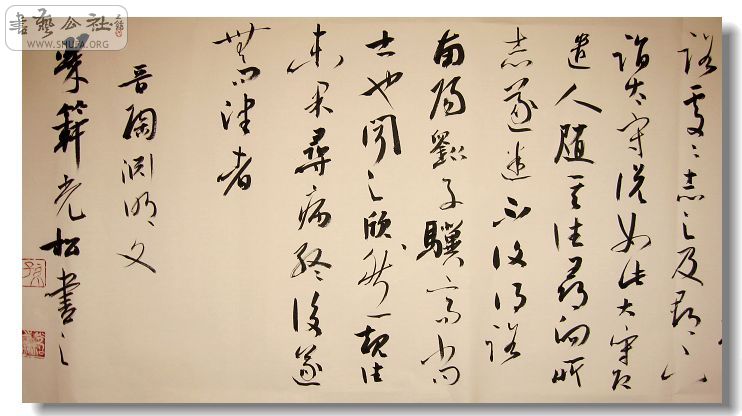 路處〻志之及郡下
詣太守說如此太守即
遣人隨其往尋向所
志遂迷不復得路
南陽劉子驥高尚
士也聞之欣然規往
未果尋病終後遂
無問津者
晉陶淵明文
松書之
書藝公社
WWW.SHUFA.ORG